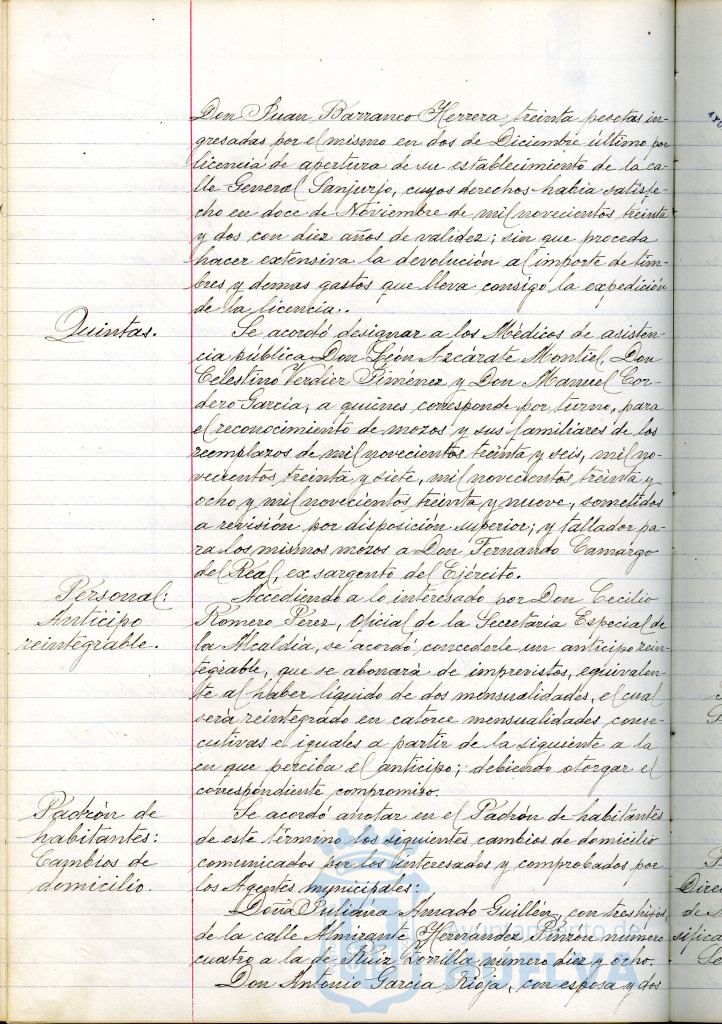 Don Juan Barranco Herrera, treinta pesetas in-
gresadas por el mismo en dos de Diciembre último por
licencia de apertura de su establecimiento de la ca-
lle General Sanjurjo, cuyos derechos había satisfe-
cho en doce de Noviembre de mil novecientos treinta
y dos con diez años de validez; sin que proceda
hacer extensiva la devolución al importe de tim-
bres y demas gastos que lleva consigo la expedición
de la licencia.
Quintas.
Se acordó designar a los Médicos de asisten-
cia pública Don León Azcárate Montiel, Don
Celestino Verdier Jiménez y Don Manuel Cor-
dero García, a quienes corresponde por turno, para
el reconocimiento de mozos y sus familiares de los
reemplazos de mil novecientos treinta y seis, mil no-
vecientos treinta y siete, mil novecientos treinta y
ocho y mil novecientos treinta y nueve, sometidos
a revisión por disposición superior; y tallador pa-
ra los mismos mozos a Don Fernando Camargo
del Real, ex sargento del Ejército.
Personal:
Anticipo
reintegrable.
Accediendo a lo interesado por Don Cecilio
Romero Pérez, Oficial de la Secretaría Especial de
la Alcaldía, se acordó concederle un anticipo rein-
tegrable, que se abonará de imprevistos, equivalen-
te al haber líquido de dos mensualidades, el cual
será reintegrado en catorce mensualidades conse-
cutivas e iguales a partir de la siguiente a la
en que perciba el anticipo; debiendo otorgar el
correspondiente compromiso.
Padrón de
habitantes:
Cambios de
domicilio.
Se acordó anotar en el Padrón de habitantes
de este término los siguientes cambios de domicilio
comunicados por los interesados y comprobados por
los Agentes municipales:
Doña Juliana Amado Guillén, con tres hijos,
de la calle Almirante Hernández Pinzón numero
cuatro a la de Ruiz Zorrilla numero diez y ocho.
Don Antonio García Rioja, con esposa y dos
Ayuntamiento de
HUELVA